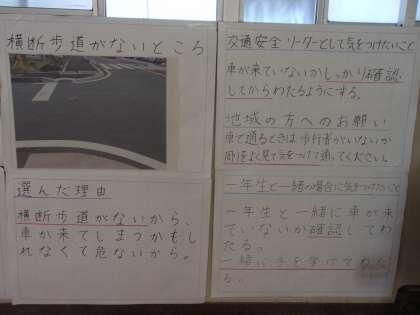 横断歩道がないところ
選んだ理由
横断歩道がないから、
車が来てしまうかもし
れなくて危ないから。
交通安全リーダーとして気をつけたいこと
車が来ていないかしっかり確認
してからわたるようにする。
地域の方へのお願い
車で通るときは歩行者がいないか
周りをよく見て気をつけて通ってください。
一年生と一緒の場合に気をつけたいこと
一年生と一緒に車が来
ていないか確認してわ
たる。
一緒に手を挙げてわた
る。